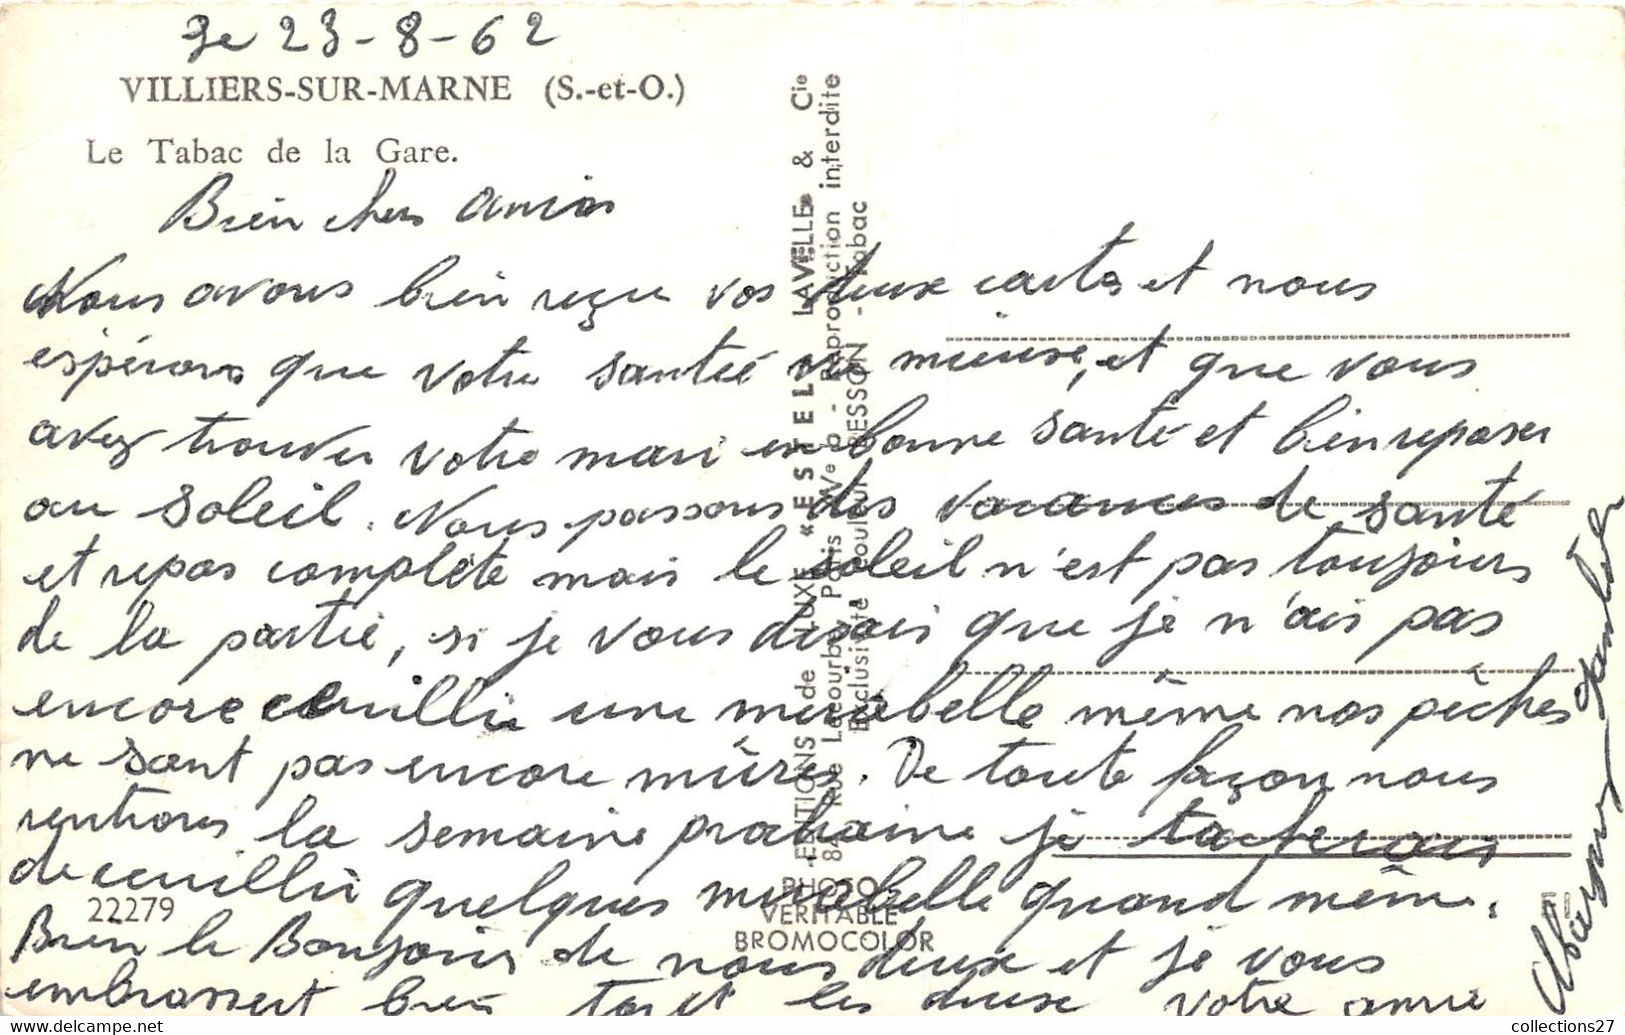 Je 23-8-62
VILLIERS-SUR-MARNE (S.-et-O.)
Le Tabac de la Gare.
Bien chers amies
Nous avons bien reçu vos deux cartes et nous
espérons que votre santée va mieux, et que vous
avez trouver votre mari en bonne santé et bien reposer
au soleil. Nous passons des vacances de santé
et repos complète mais le soleil n'est pas toujours
de la partie, si je vous disais que je n'ais pas
encore ceuillie une mirabelle même nos pêches
ne sont pas encore mûres. De toute façon nous
rentrons la semaine prochaine je tacherais
de ceuillir quelques mirabelle quand même.
Bien le Bonjour de nous deux et je vous
embrassent bien tout les deux votre amie
22279
EDITIONS de LUXE « ESTEL » LAVELLE & Cie
84, Rue Lecourbe, Paris XVe - Reproduction interdite
Exclusivité couleur BESSON - Tabac
PHOTO
VÉRITABLE
BROMOCOLOR
collections27